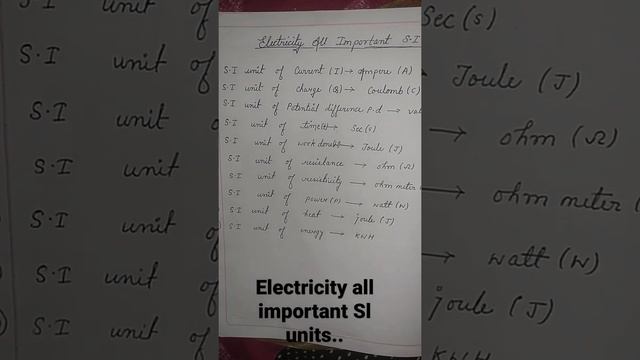 Electricity All Important S.I
S.I unit of Current (I) → Ampere (A)
S.I unit of charge (Q) → Coulomb (C)
S.I unit of Potential difference P.d →
S.I unit of time(t) → Sec(s)
S.I unit of work done → Joule (J)
S.I unit of resistance → ohm (Ω)
S.I unit of resistivity → ohm meter
S.I unit of power(P) → watt (W)
S.I unit of heat → joule (J)
S.I unit of energy → KWH
Electricity all
important SI
units..
S.I unit of
S.I unit
S.I unit
S.I unit
S.I unit
S.I unit of
Sec(s)
→ Joule (J)
→ ohm (Ω)
→ ohm meter (
→ watt (W)
joule (J)
KWH